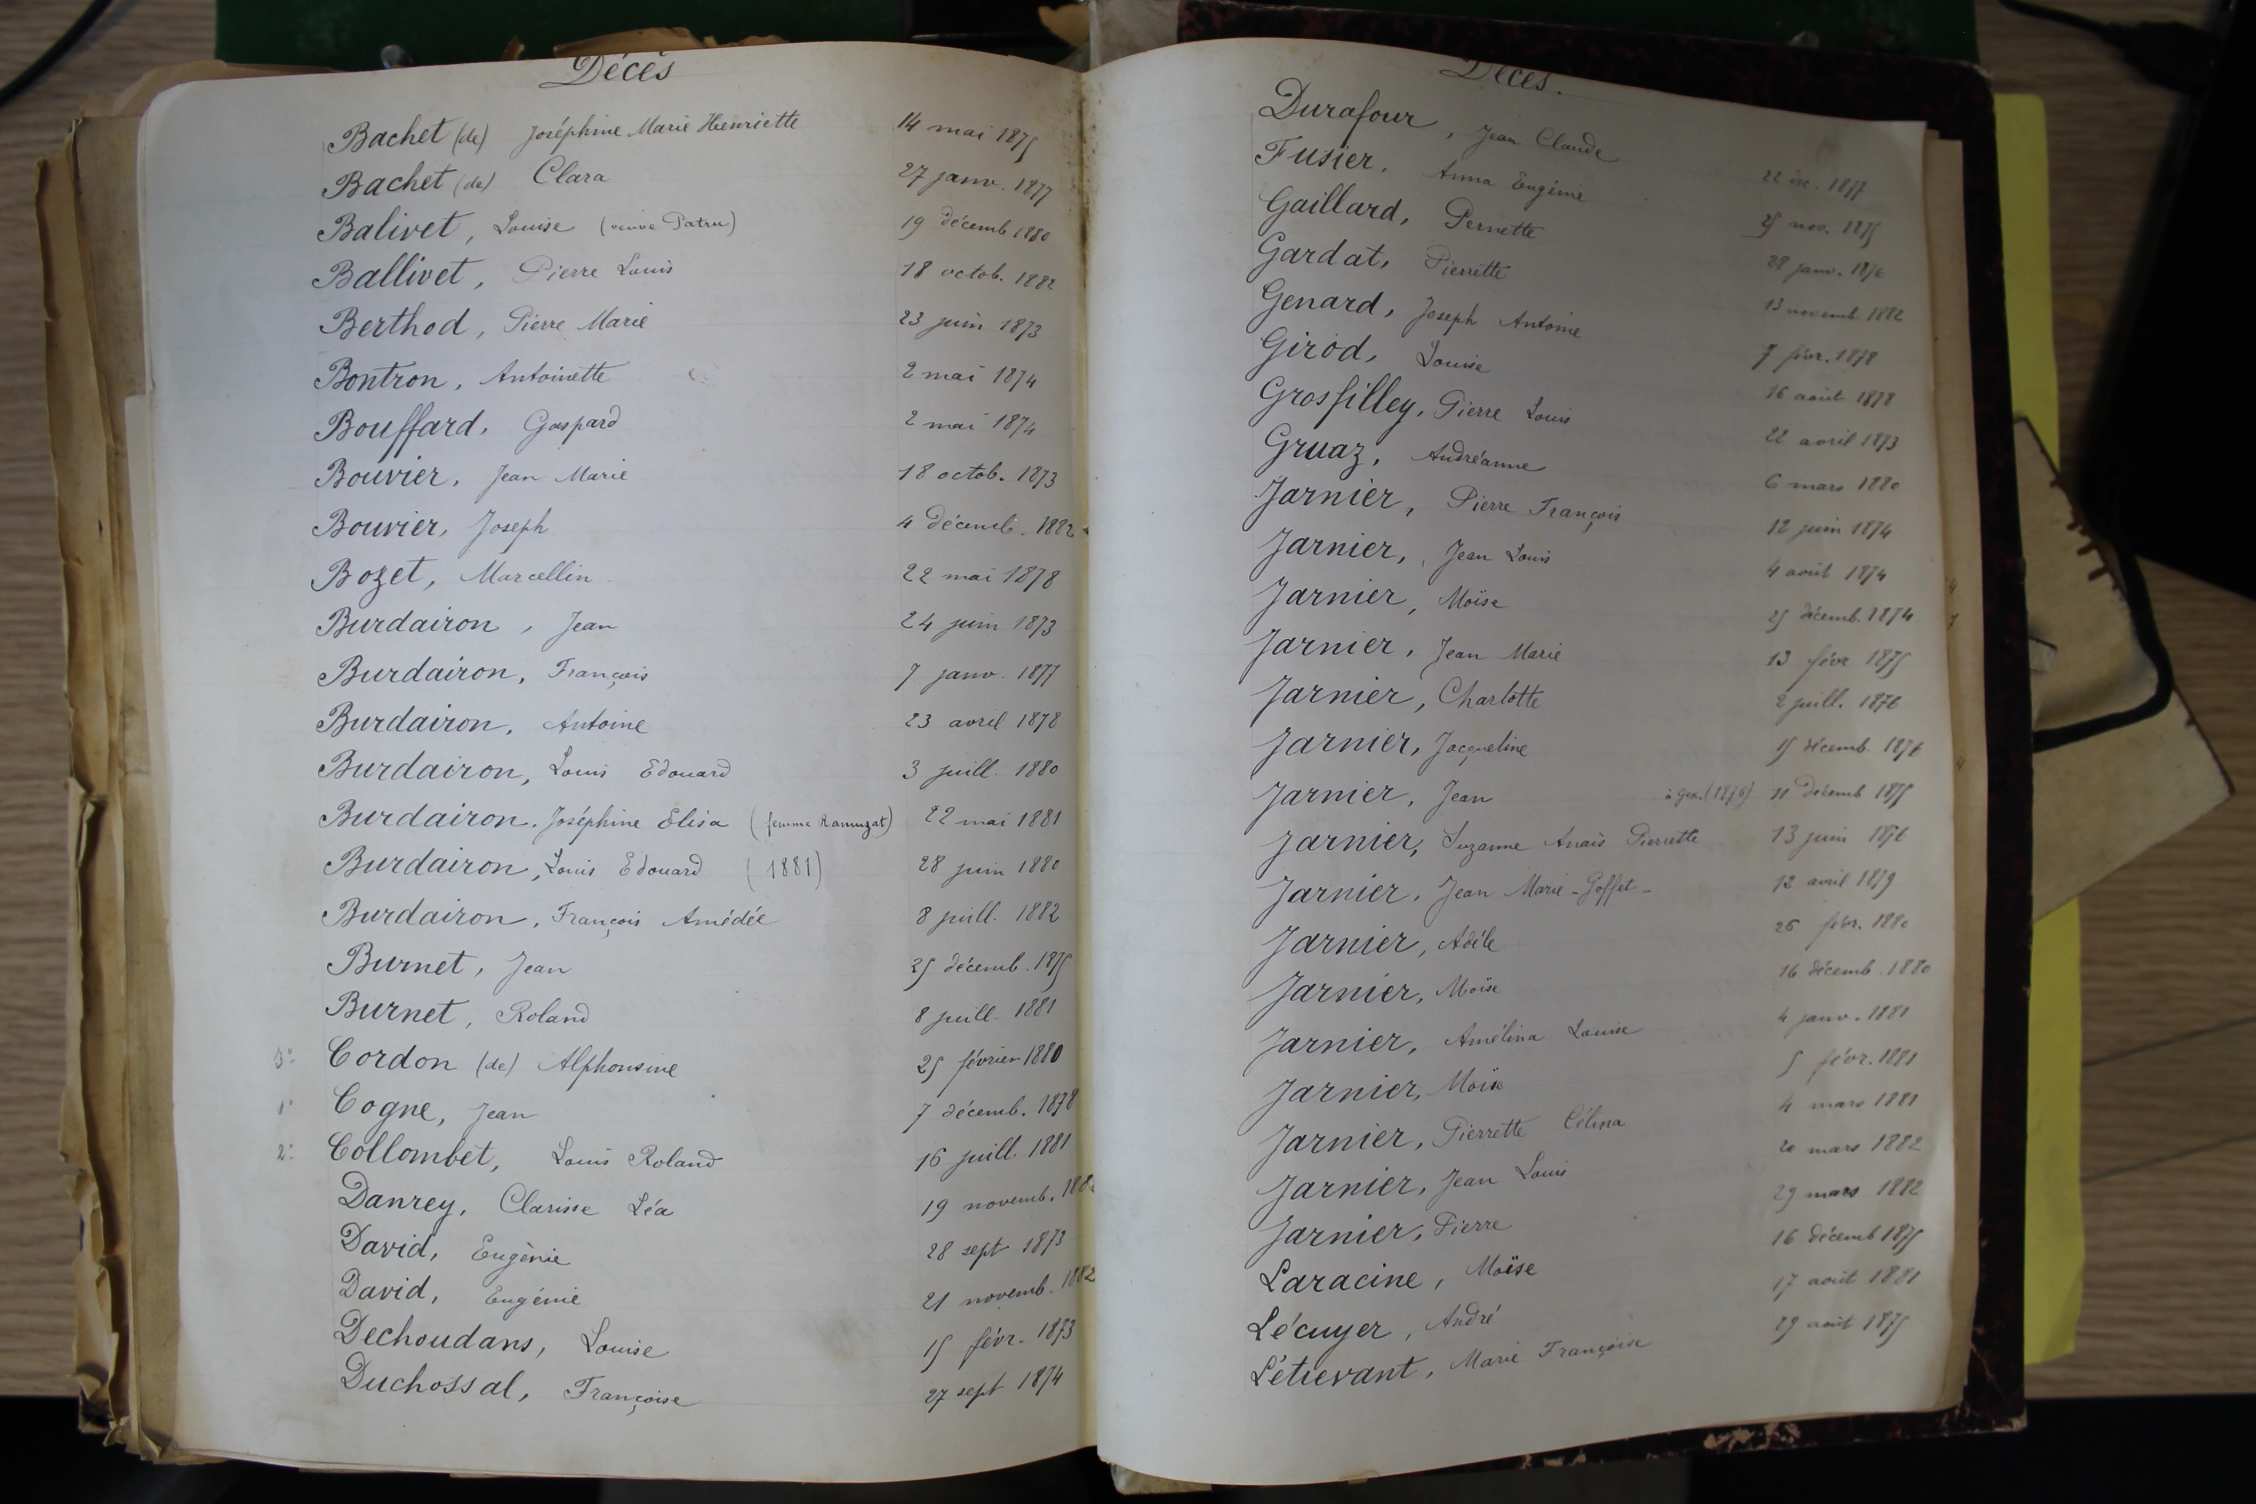 Décès
Bachet (de) Joséphine Marie Henriette 14 mai 1875
Bachet (de) Clara 27 janv. 1877
Balivet, Louise (veuve Patru) 19 décemb 1880
Ballivet, Pierre Louis 18 octob. 1882
Berthod, Pierre Marie 23 juin 1873
Bontron, Antoinette 2 mai 1874
Bouffard, Gaspard 2 mai 1874
Bouvier, Jean Marie 18 octob. 1873
Bouvier, Joseph 4 décemb. 1882
Bozet, Marcellin 22 mai 1878
Burdairon, Jean 24 juin 1873
Burdairon, François 7 janv. 1877
Burdairon, Antoine 23 avril 1878
Burdairon, Louis Edouard 3 juill. 1880
Burdairon. Joséphine Elisa (femme Ramuzat) 22 mai 1881
Burdairon, Louis Edouard (1881) 28 juin 1880
Burdairon, François Amédée 8 juill. 1882
Burnet, Jean 25 décemb. 1875
Burnet, Roland 8 juill. 1881
3° Cordon (de) Alphonsine 25 février 1880
1° Cogne, Jean 7 décemb. 1878
2° Collombet, Louis Roland 16 juill. 1881
Danrey, Clarisse Léa 19 novemb.
David, Eugénie 28 sept 1873
David, Eugénie 21 novemb. 1882
Dechoudans, Louise 15 févr. 1873
Duchossal, Françoise 27 sept 1874
Décès.
Durafour, Jean Claude 22 déc. 1877
Fusier, Anna Eugénie 25 nov. 1875
Gaillard, Pernette 28 janv. 1876
Gardat, Pierrette 13 novemb 1882
Genard, Joseph Antoine 7 févr. 1878
Girod, Louise 16 août 1878
Grosfilley, Pierre Louis 22 avril 1873
Gruaz, Andréanne 6 mars 1880
Jarnier, Pierre François 12 juin 1874
Jarnier, Jean Louis 4 août 1874
Jarnier, Moïse 25 décemb. 1874
Jarnier, Jean Marie 13 févr 1875
Jarnier, Charlotte 2 juill. 1876
Jarnier, Jacqueline 15 décemb. 1876
Jarnier, Jean (1876) 11 décemb 1875
Jarnier, Suzanne Anaïs Pierrette 13 juin 1876
Jarnier, Jean Marie - Goffet - 12 avril 1879
Jarnier, Adèle 26 févr. 1880
Jarnier, Moïse 16 décemb. 1880
Jarnier, Amélina Louise 4 janv. 1881
Jarnier, Moïse 5 févr. 1881
Jarnier, Pierrette Célina 4 mars 1881
Jarnier, Jean Louis 20 mars 1882
Jarnier, Pierre 29 mars 1882
Laracine, Moïse 16 décemb 1875
Lécuyer, André 17 août 1881
Létievant, Marie Françoise 29 août 1875